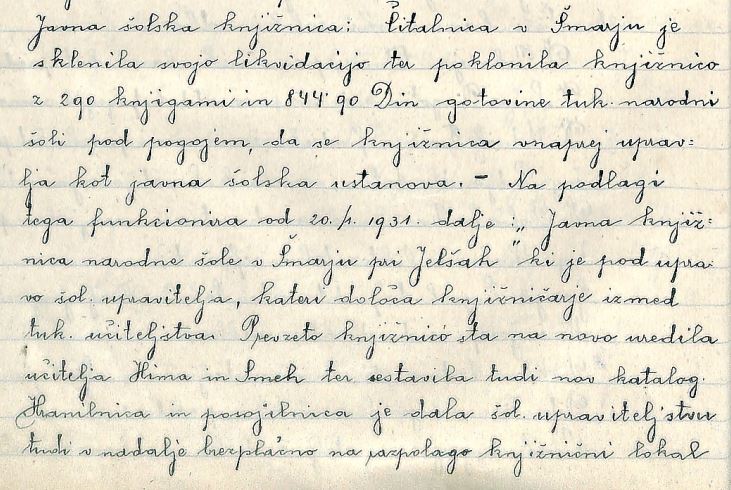 Javna šolska knjižnica: Čitalnica v Šmarju je
sklenila svojo likvidacijo ter poklonila knjižnico
z 290 knjigami in 844·90 Din gotovine tuk. narodni
šoli pod pogojem, da se knjižnica vnaprej uprav=
lja kot javna šolska ustanova. – Na podlagi
tega funkcionira od 20./1. 1931. dalje: „Javna knjiž=
nica narodne šole v Šmarju pri Jelšah" ki je pod upra-
vo šol. upravitelja, kateri določa knjižničarje izmed
tuk. učiteljstva. Prevzeto knjižnico sta na novo uredila
učitelja Hima in Smeh ter sestavila tudi nov katalog.
Hranilnica in posojilnica je dala šol. upraviteljstvu
tudi v nadalje brezplačno na razpolago knjižnični lokal